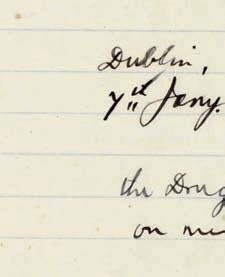 Dublin,
7th Jany.
the Drug
on